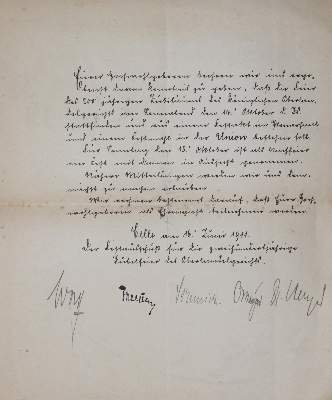 Euer Hochwohlgeboren beehren wir uns erge-
benst davon Kenntnis zu geben, daß die Feier
des 200 jährigen Jubiläums des Königlichen Oberlan-
desgerichts am Sonnabend den 14. Oktober d. Js.
stattfinden und aus einem Festakt im
und einem Festmahl in der Union bestehen soll.
Für Sonntag den 15. Oktober ist als Nachfeier
ein Fest mit Damen in Aussicht genommen.
Nähere Mitteilungen werden wir uns dem-
nächst zu machen erlauben.
Wir rechnen bestimmt darauf, daß Euer Hoch-
wohlgeboren als Ehrengast teilnehmen werden.
Celle am 16. Juni 1911.
Der Festausschuß für die zweihundertjährige
Jubelfeier des Oberlandesgerichts.